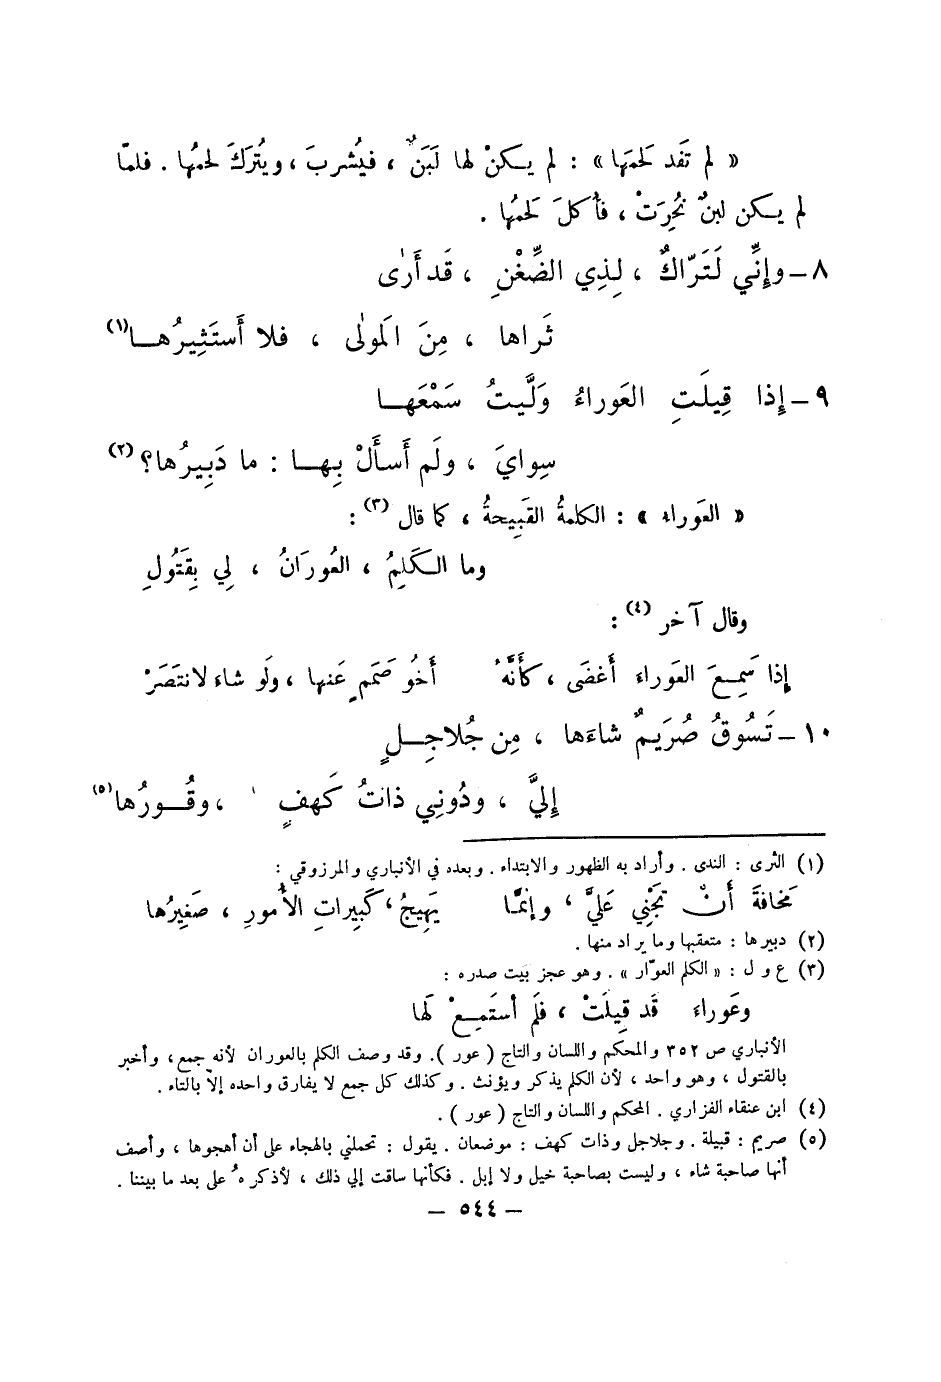 « لم تَفد لَحمَها » : لم يكنْ لها لَبَنٌ ، فيُشربَ ، ويُتركَ لحمُها . فلمّا
لم يكن لبنٌ نُحِرَتْ ، فأُكلَ لَحمُها .
٨ – وإنِّي لَتَرّاكٌ ، لِذِي الضِّغْنِ ، قَد أَرٰى
ثَراها ، مِنَ المَولٰى ، فلا أَستَثِيرُها(١)
٩ – إِذا قِيلَتِ العَوراءُ وَلَّيتُ سَمْعَها
سِوايَ ، ولَم أَسأَلْ بِها : ما دَبِيرُها؟(٢)
« العَوراء » : الكلمةُ القَبِيحةُ ، كما قال(٣) :
وما الكَلِمُ ، العُورَانُ ، لِي بِقَتُولِ
وقال آخر(٤) :
إِذا سَمِعَ العَوراءَ أَغضَى ، كأَنَّهُ أَخُو صَمَمٍ عَنها ، ولَو شاءَ لانتَصَرْ
١٠ – تَسُوقُ صُرَيمٌ شاءَها ، مِن جُلاجِلٍ
إِليَّ ، ودُونِي ذاتُ كَهفٍ ، وقُورُها(٥)
(١) الثرى : الندى . وأراد به الظهور والابتداء . وبعده في الأنباري والمرزوقي :
مَخافةَ أَنْ تَجْنِي عَليَّ ، وإنّما يَهِيجُ ، كَبِيراتِ الأُمورِ ، صَغِيرُها
(٢) دبيرها : متعقبها وما يراد منها .
(٣) ع و ل : « الكلم العوّار » . وهو عجز بيت صدره :
وعَوراءَ قَد قِيلَتْ ، فلَم أستَمِعْ لَها
الأنباري ص ٣٥٢ والمحكم واللسان والتاج ( عور ). وقد وصف الكلم بالعوران لأنه جمع، وأخبر
بالقتول ، وهو واحد ، لأن الكلم يذكر ويؤنث . وكذلك كل جمع لا يفارق واحده إلاّ بالتاء .
(٤) ابن عنقاء الفزاري . المحكم واللسان والتاج ( عور ) .
(٥) صريم : قبيلة . وجلاجل وذات كهف : موضعان . يقول : تحملني بالهجاء على أن أهجوها ، وأصف
أنها صاحبة شاء ، وليست بصاحبة خيل ولا إبل . فكأنها ساقت إلي ذلك ، لأذكرهُ على بعد ما بيننا .
– ٥٤٤ –